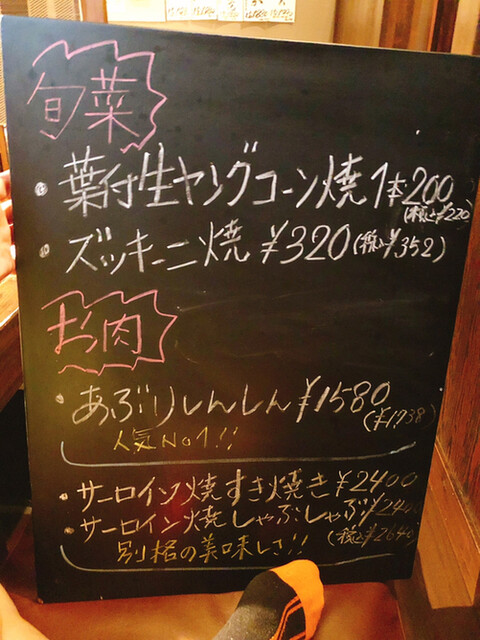 旬菜
・葉付生ヤングコーン焼1本200
(税込¥220)
・ズッキーニ焼 ¥320(税込¥352)
お肉
・あぶりしんしん¥1580
(¥1738)
人気No1!!
・サーロイン焼すき焼き¥2400
・サーロイン焼しゃぶしゃぶ¥2400
(税込¥2640)
別格の美味しさ!!